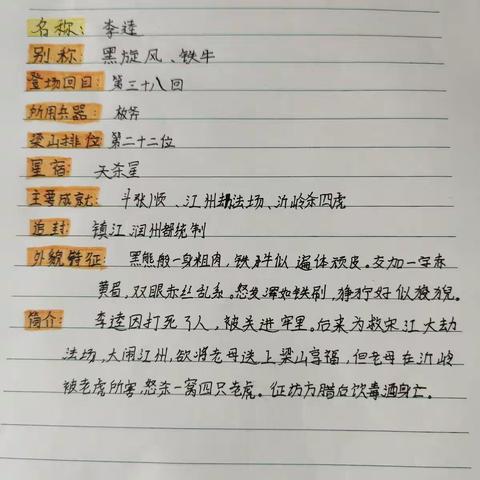 名称:李逵
别称:黑旋风、铁牛
登场回目:第三十八回
所用兵器:板斧
梁山排位 第二十二位
星宿: 天杀星
主要成就: 斗张顺、江州劫法场、沂岭杀四虎
追封: 镇江润州都统制
外貌特征: 黑熊般一身粗肉,铁牛似遍体顽皮。交加一字赤
黄眉,双眼赤丝乱系。怒发浑如铁刷,狰狞好似狻猊。
简介: 李逵因打死了人,被关进牢里。后来为救宋江大劫
法场,大闹江州,欲将老母送上梁山享福,但老母在沂岭
被老虎所害,怒杀一窝四只老虎。征讨方腊后饮毒酒身亡。